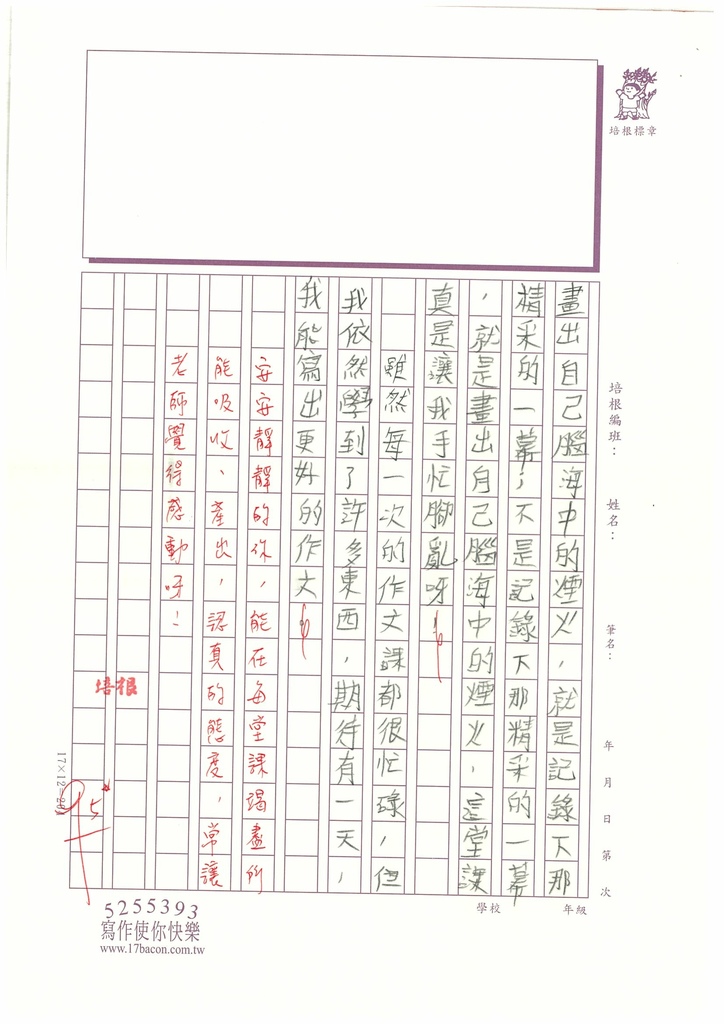 培根標章
培根編班：
姓名：
筆名：
年 月 日 第 次
學校 年級
畫出自己腦海中的煙火，就是記錄下那
精采的一幕；不是記錄下那精采的一幕
，就是畫出自己腦海中的煙火，這堂課
真是讓我手忙腳亂呀
雖然每一次的作文課都很忙碌，但
我依然學到了許多東西，期待有一天，
我能寫出更好的作文
安安靜靜的你，能在每堂課竭盡所
能吸收、產出，認真的態度，常讓
老師覺得感動呀！
培根
95
5255393
寫作使你快樂
www.17bacon.com.tw